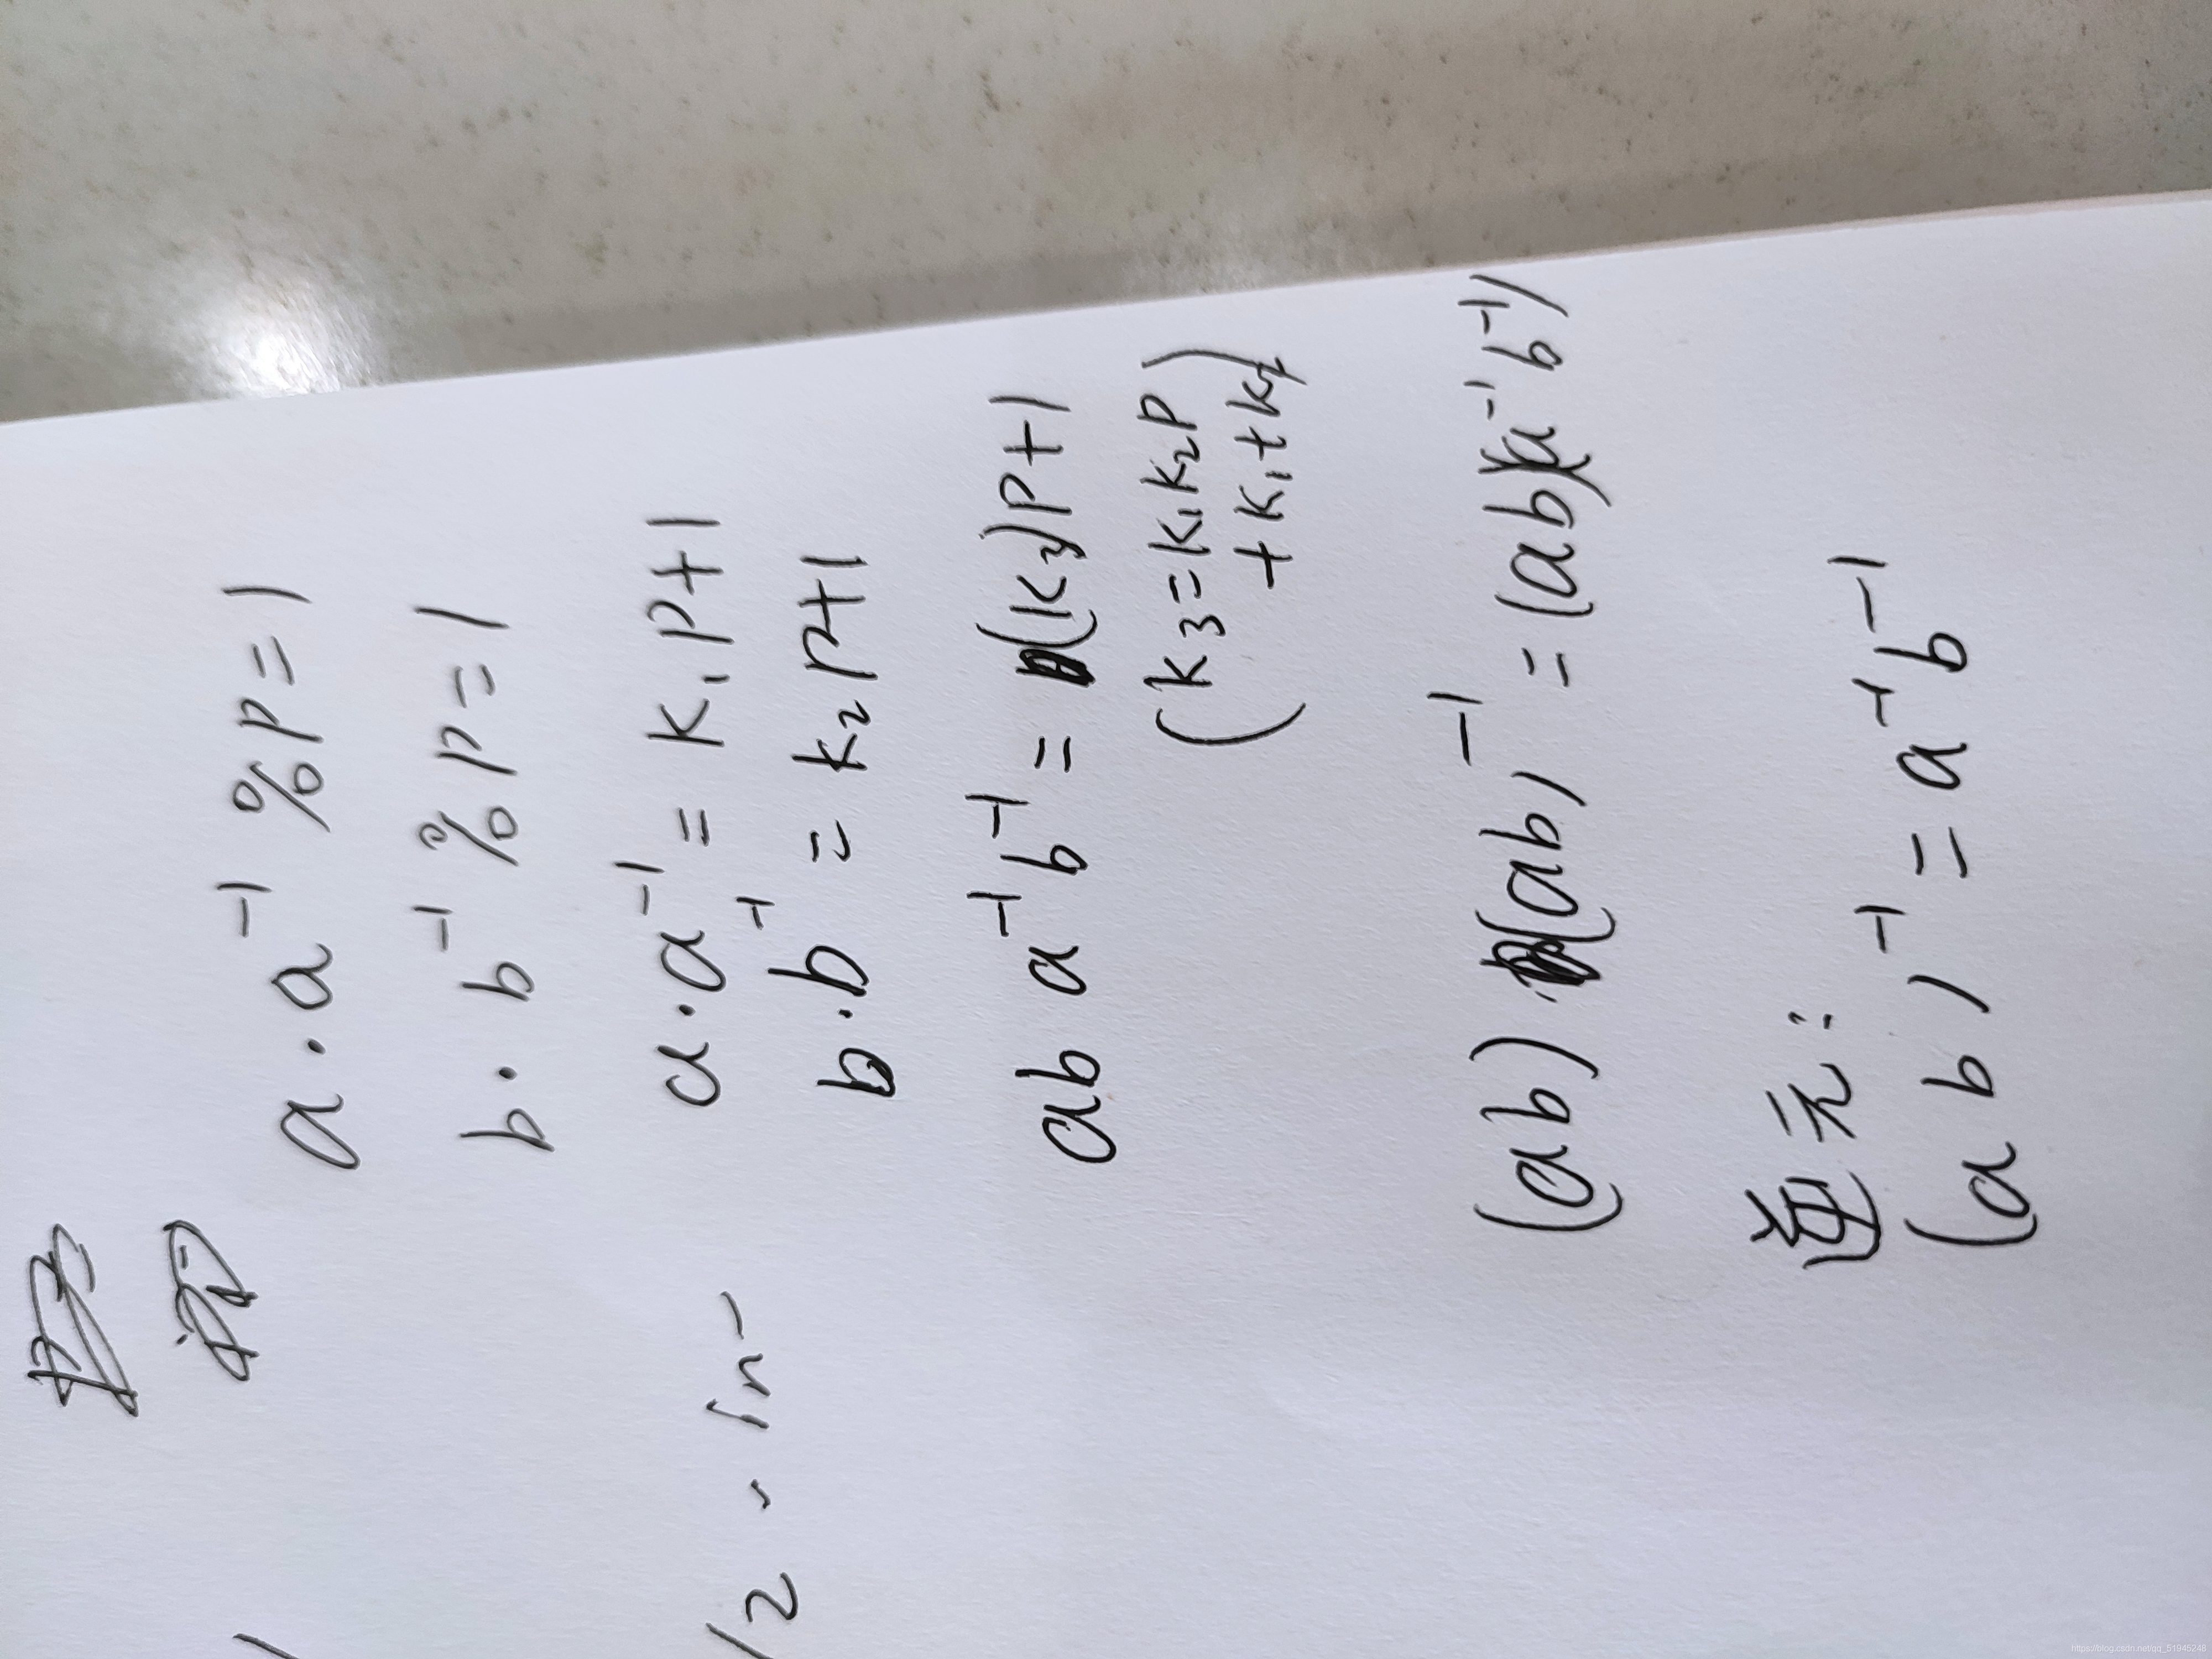 a · a⁻¹ % p = 1
b · b⁻¹ % p = 1
a · a⁻¹ = k₁p+1
b · b⁻¹ = k₂p+1
ab a⁻¹b⁻¹ = (k₃)p+1
(k₃ = k₁k₂p
+ k₁ + k₂)
(ab) · (ab)⁻¹ = (ab)(a⁻¹b⁻¹)
逆元:
(ab)⁻¹ = a⁻¹b⁻¹
https://blog.csdn.net/qq_51945248